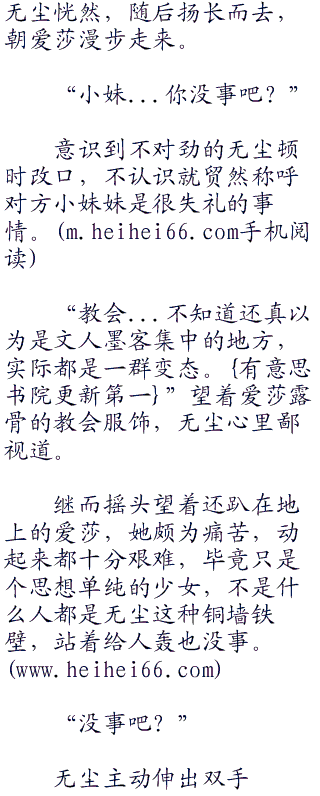 无尘恍然，随后扬长而去，
朝爱莎漫步走来。
“小妹...你没事吧？”
意识到不对劲的无尘顿
时改口，不认识就贸然称呼
对方小妹妹是很失礼的事
情。(m.heihei66.com手机阅
读)
“教会...不知道还真以
为是文人墨客集中的地方，
实际都是一群变态。{有意思
书院更新第一}”望着爱莎露
骨的教会服饰，无尘心里鄙
视道。
继而摇头望着还趴在地
上的爱莎，她颇为痛苦，动
起来都十分艰难，毕竟只是
个思想单纯的少女，不是什
么人都是无尘这种铜墙铁
壁，站着给人轰也没事。
(www.heihei66.com)
“没事吧？”
无尘主动伸出双手